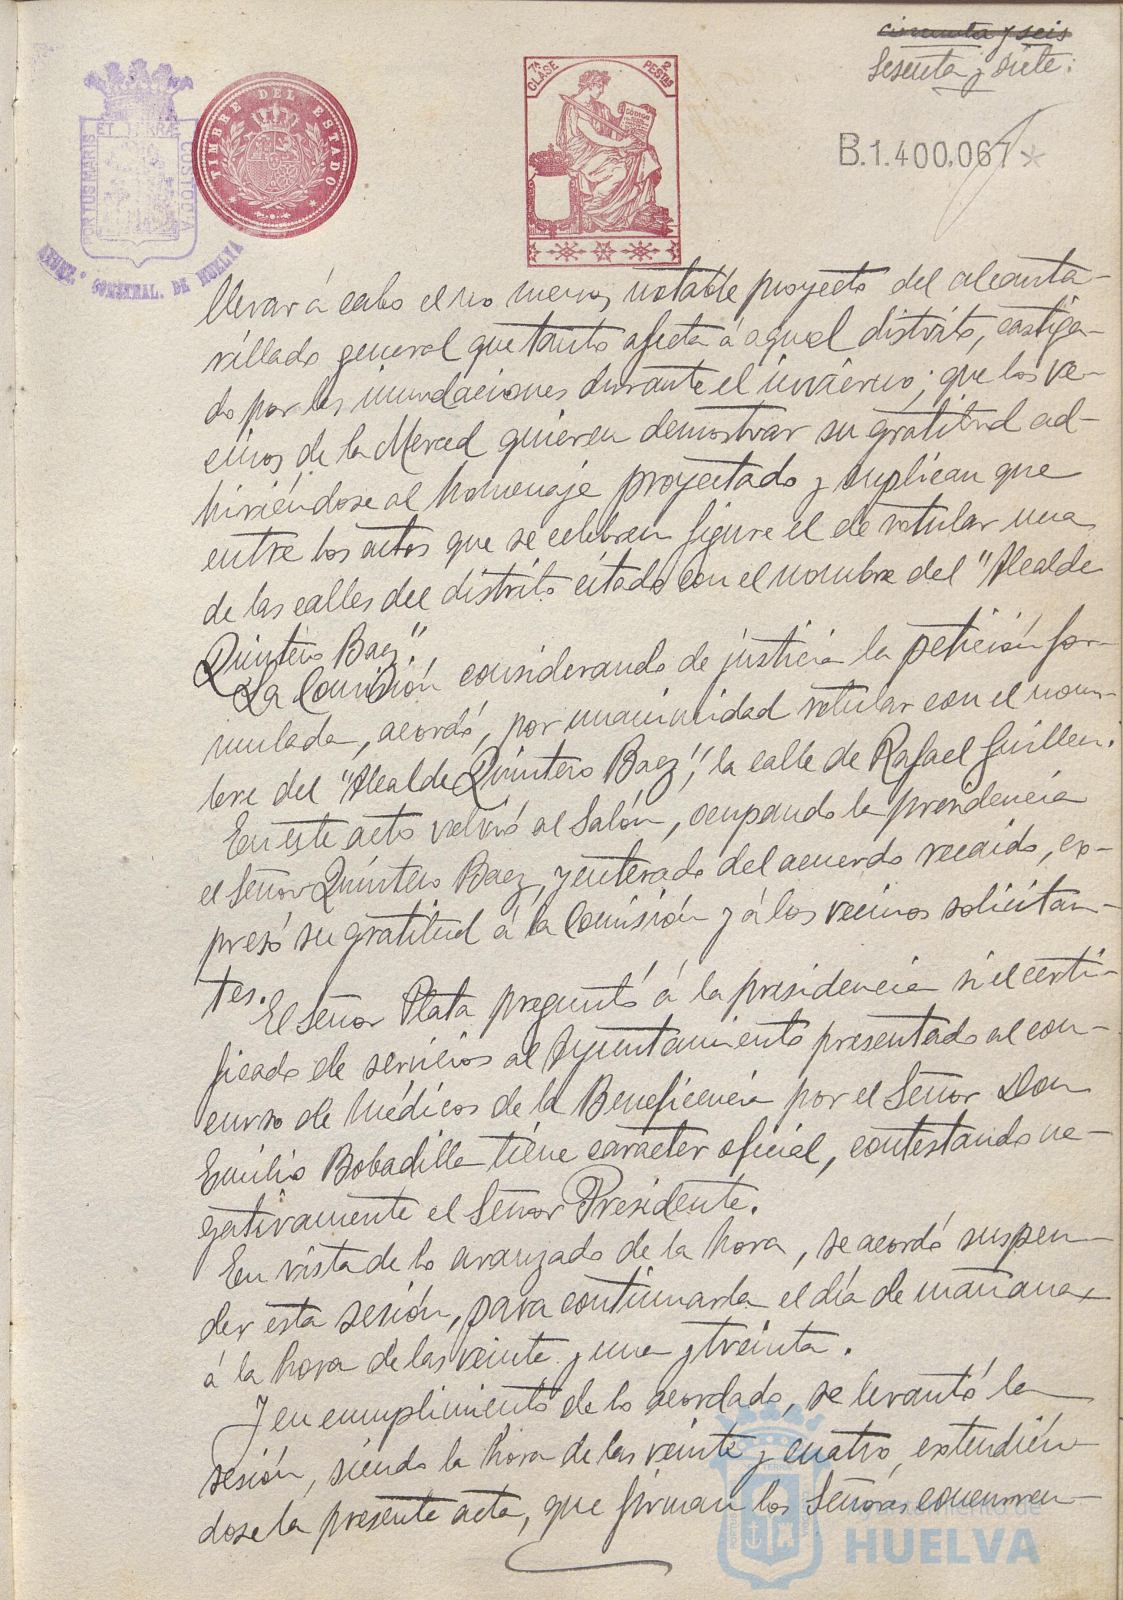 cincuenta y seis
Sesenta y siete.
7ª CLASE
2 PESTAS
CÓDIGO
TIMBRE DEL ESTADO
PORTUS MARIS
ET TERRÆ
CUSTODIA
MUNAL. DE HUELVA
B.1.400.067*
llevar á cabo el no menos notable proyecto del alcanta-
rillado general que tanto afecta á aquel distrito, castiga-
do por las inundaciones durante el invierno; que los ve-
cinos de la Merced quieren demostrar su gratitud ad-
hiriéndose al homenaje proyectado y suplican que
entre los actos que se celebren figure el de rotular una
de las calles del distrito citado con el nombre del "Alcalde
Quintero Baez".
La Comisión considerando de justicia la petición for-
mulada, acordó, por unanimidad rotular con el nom-
bre del "Alcalde Quintero Baez", la calle de Rafael Guillen.
En este acto volvió al Salón, ocupando la presidencia
el Señor Quintero Baez, y enterado del acuerdo recaido, ex-
presó su gratitud á la Comisión y á los vecinos solicitan-
tes.
El Señor Plata preguntó á la presidencia si el certi-
ficado de servicios al Ayuntamiento presentado al con-
curso de Médicos de la Beneficencia por el Señor Don
Emilio Bobadilla tiene carácter oficial, contestando ne-
gativamente el Señor Presidente.
En vista de lo avanzado de la hora, se acordó suspen-
der esta sesión, para continuarla el día de mañana,
á la hora de las veinte y una y treinta.
Y en cumplimiento de lo acordado, se levantó la
sesión, siendo la hora de las veinte y cuatro, extendién-
dose la presente acta, que firman los Señores concurren-
Ayuntamiento de
HUELVA